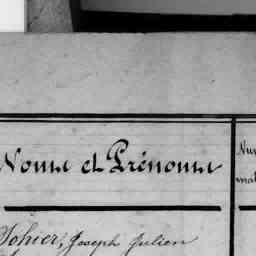 Noms et Prénoms
Nu
mat
Tohier, Joseph Julien